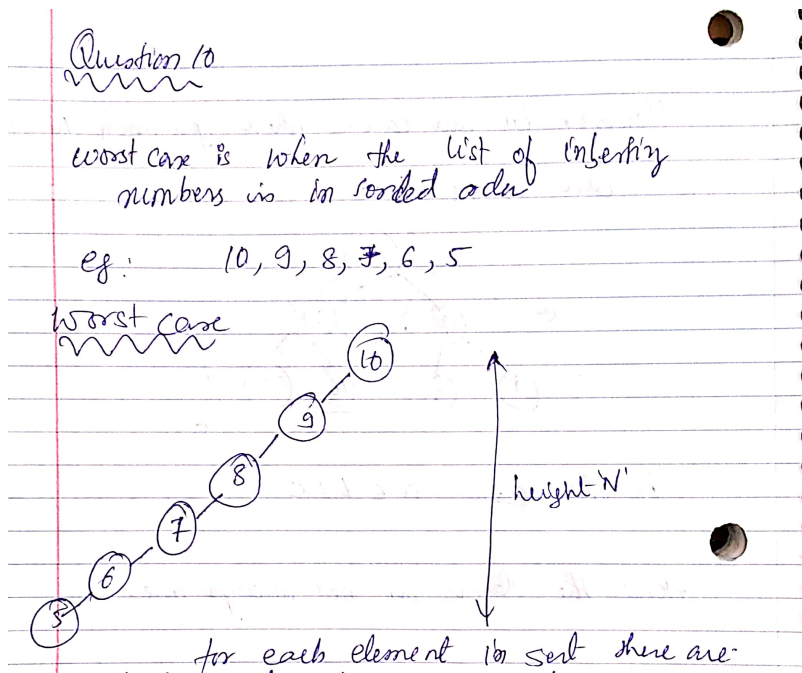 Question 10
worst case is when the list of inserting
numbers is in sorded order
eg: 10, 9, 8, 7, 6, 5
Worst case
10
9
8
7
6
5
height 'N'.
for each element in sert there are